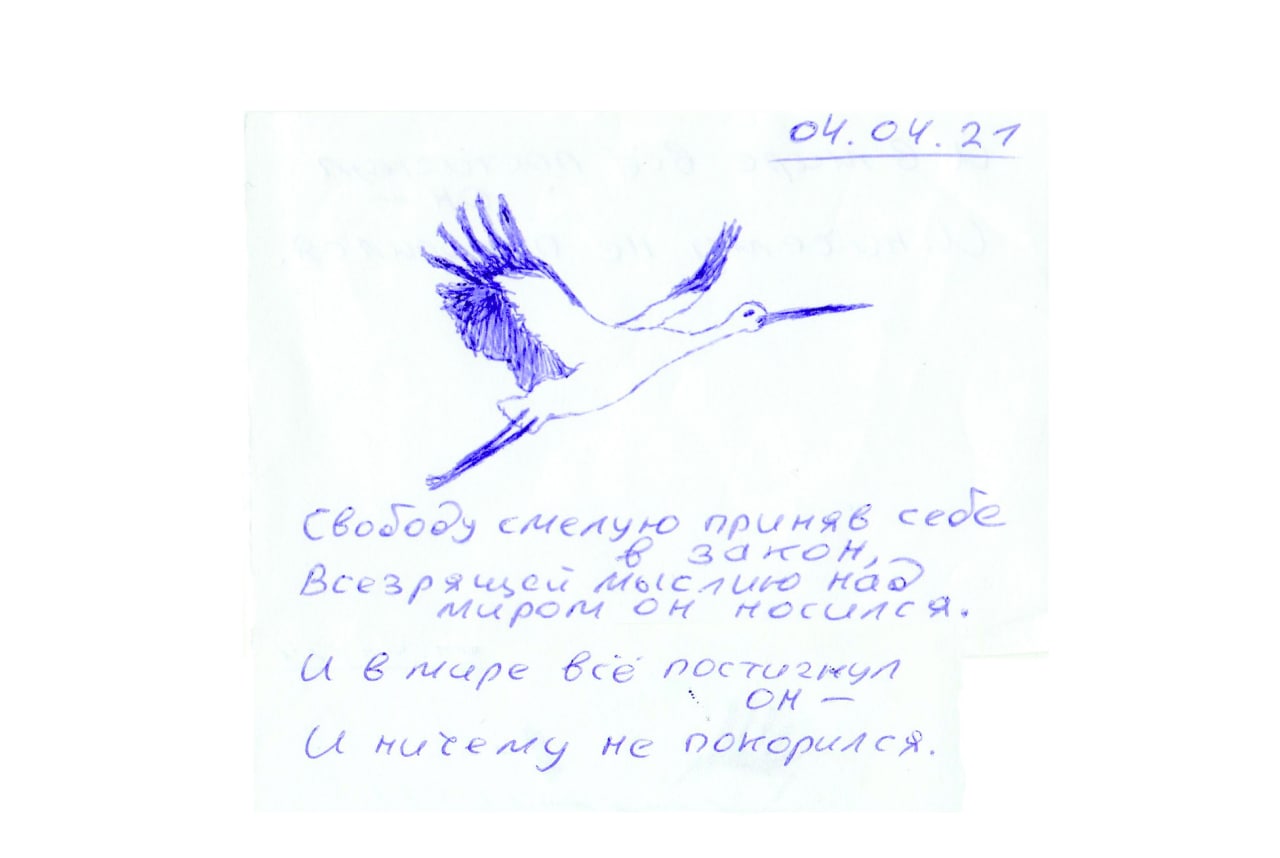 04.04.21
Свободу смелую приняв себе
в закон,
Всезрящей мыслию над
миром он носился.
И в мире всё постигнул
он —
И ничему не покорился.